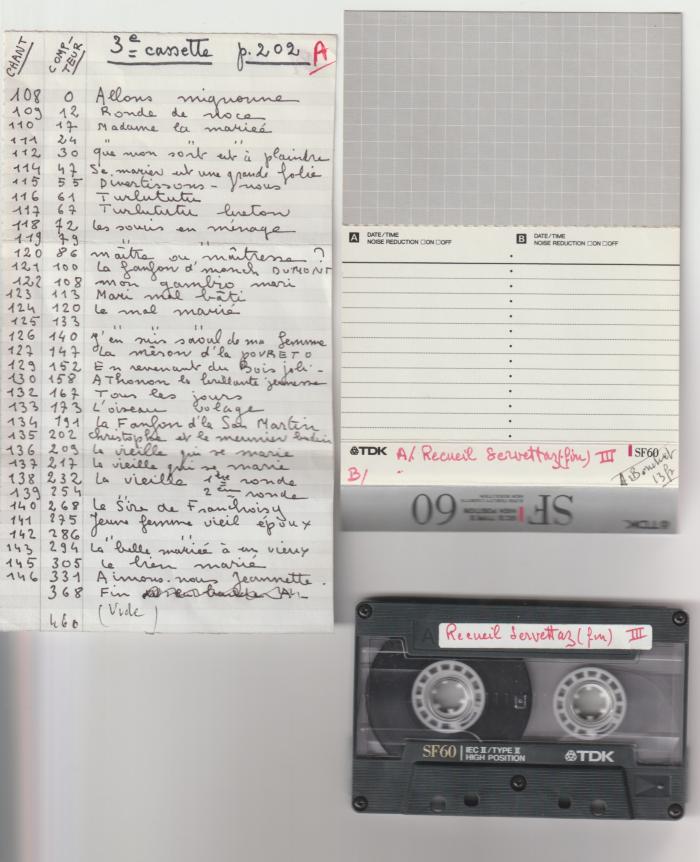 3e cassette p.202 A
CHANT COMP-TEUR
108 0 Allons mignonne
109 12 Ronde de noce
110 17 Madame la mariée
111 24 " " "
112 30 que mon sort est à plaindre
114 47 Se marier est une grande folie
115 55 Divertissons-nous
116 61 Turlututu
117 67 Turlututu breton
118 72 Les souris en ménage
119 79 " "
120 86 maître ou maîtresse ?
121 100 La fanfon d'manch DUMONT
122 108 mon gambio mari
123 113 Mari mal bâti
124 120 Le mal marié
125 133 " "
126 140 J'en suis saoul de ma femme
127 147 La méson d'la POVRETO
129 152 En revenant du Bois joli -
130 158 A Thonon la brillante jeunesse
132 167 Tous les jours
133 173 L'oiseau volage
134 191 La Fanfon d'le San Martin
135 202 christophe et le meunier
136 209 La vieille qui se marie
137 217 La vieille qui se marie
138 232 La vieille 1ère ronde
139 254 2ème ronde
140 268 Le Sire de Franboisy
141 275 Jeune femme vieil époux
142 286 " "
143 294 La belle mariée à un vieux
145 305 Le bien marié
146 331 Aimons-nous Jeannette.
368 Fin
460 (Vide)
A DATE/TIME
NOISE REDUCTION ☐ON ☐OFF
B DATE/TIME
NOISE REDUCTION ☐ON ☐OFF
TDK A/ Recueil Servettaz (fin) III SF60
B/ "
SF 60 IEC II/TYPE II HIGH POSITION TDK
A Recueil Servettaz (fin) III
SF60 IEC II/TYPE II
HIGH POSITION
TDK